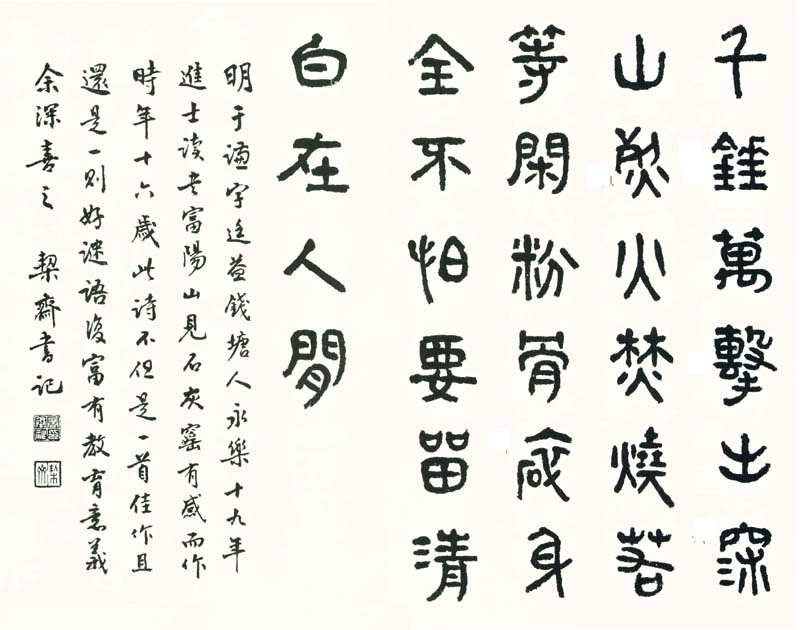 千錘萬擊出深
山烈火焚燒若
等閑粉骨碎身
全不怕要留清
白在人閒
明于謙字廷益錢塘人永樂十九年
進士读書富陽山見石灰窰有感而作
時年十六歲此诗不但是一首佳作且
還是一则好谜语後富有教育意義
余深喜之 契齋書记